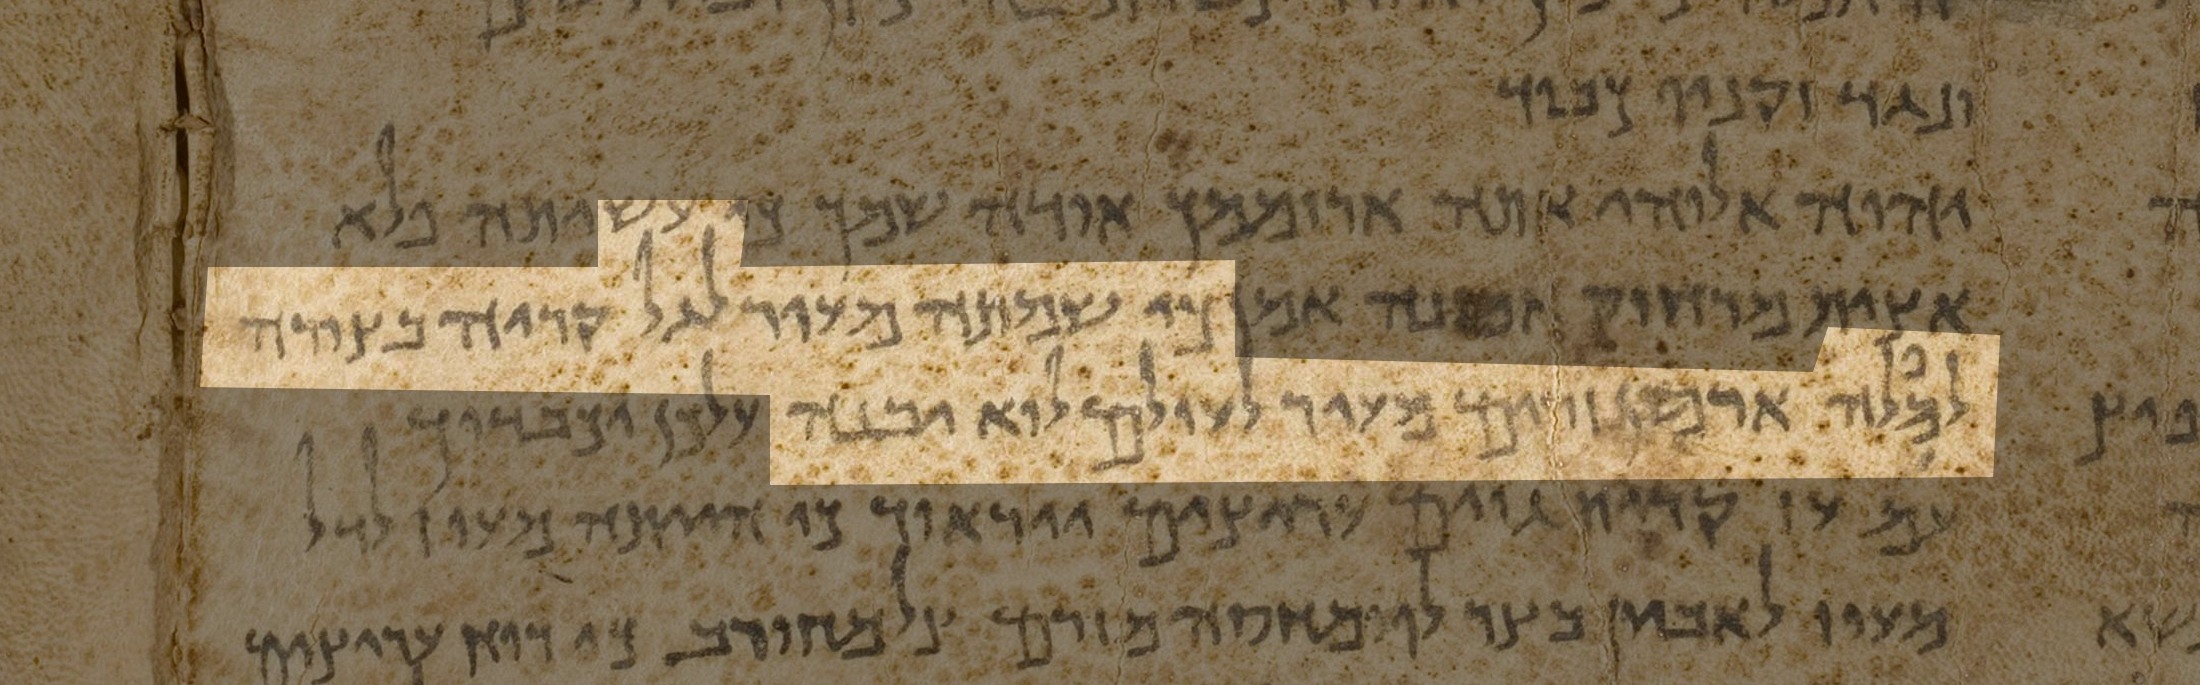 ונגד זקניו כבוד
יהוה אלוהי אתה ארוממך אודה שמך כי עשיתה פלא
אצות מרחוק אמונה אמן כי שמתה מעיר לגל קריה בצורה
למפלה ארמון זרים מעיר לעולם לוא יבנה על כן יכבדוך
עם עז קרית גוים עריצים ייראוך כי הייתה מעוז לדל
מעוז לאביון בצר לו מחסה מזרם צל מחורב כי רוח עריצים